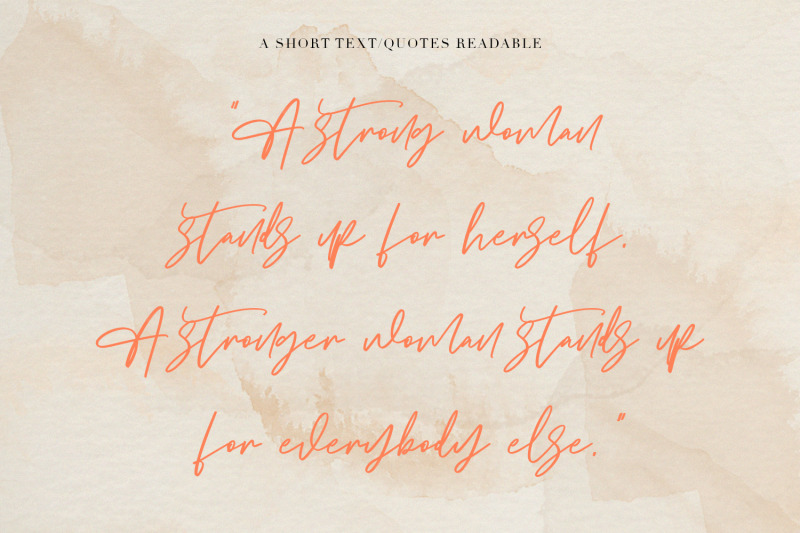 A SHORT TEXT/QUOTES READABLE
"A strong woman
stands up for herself.
A stronger woman stands up
for everybody else."